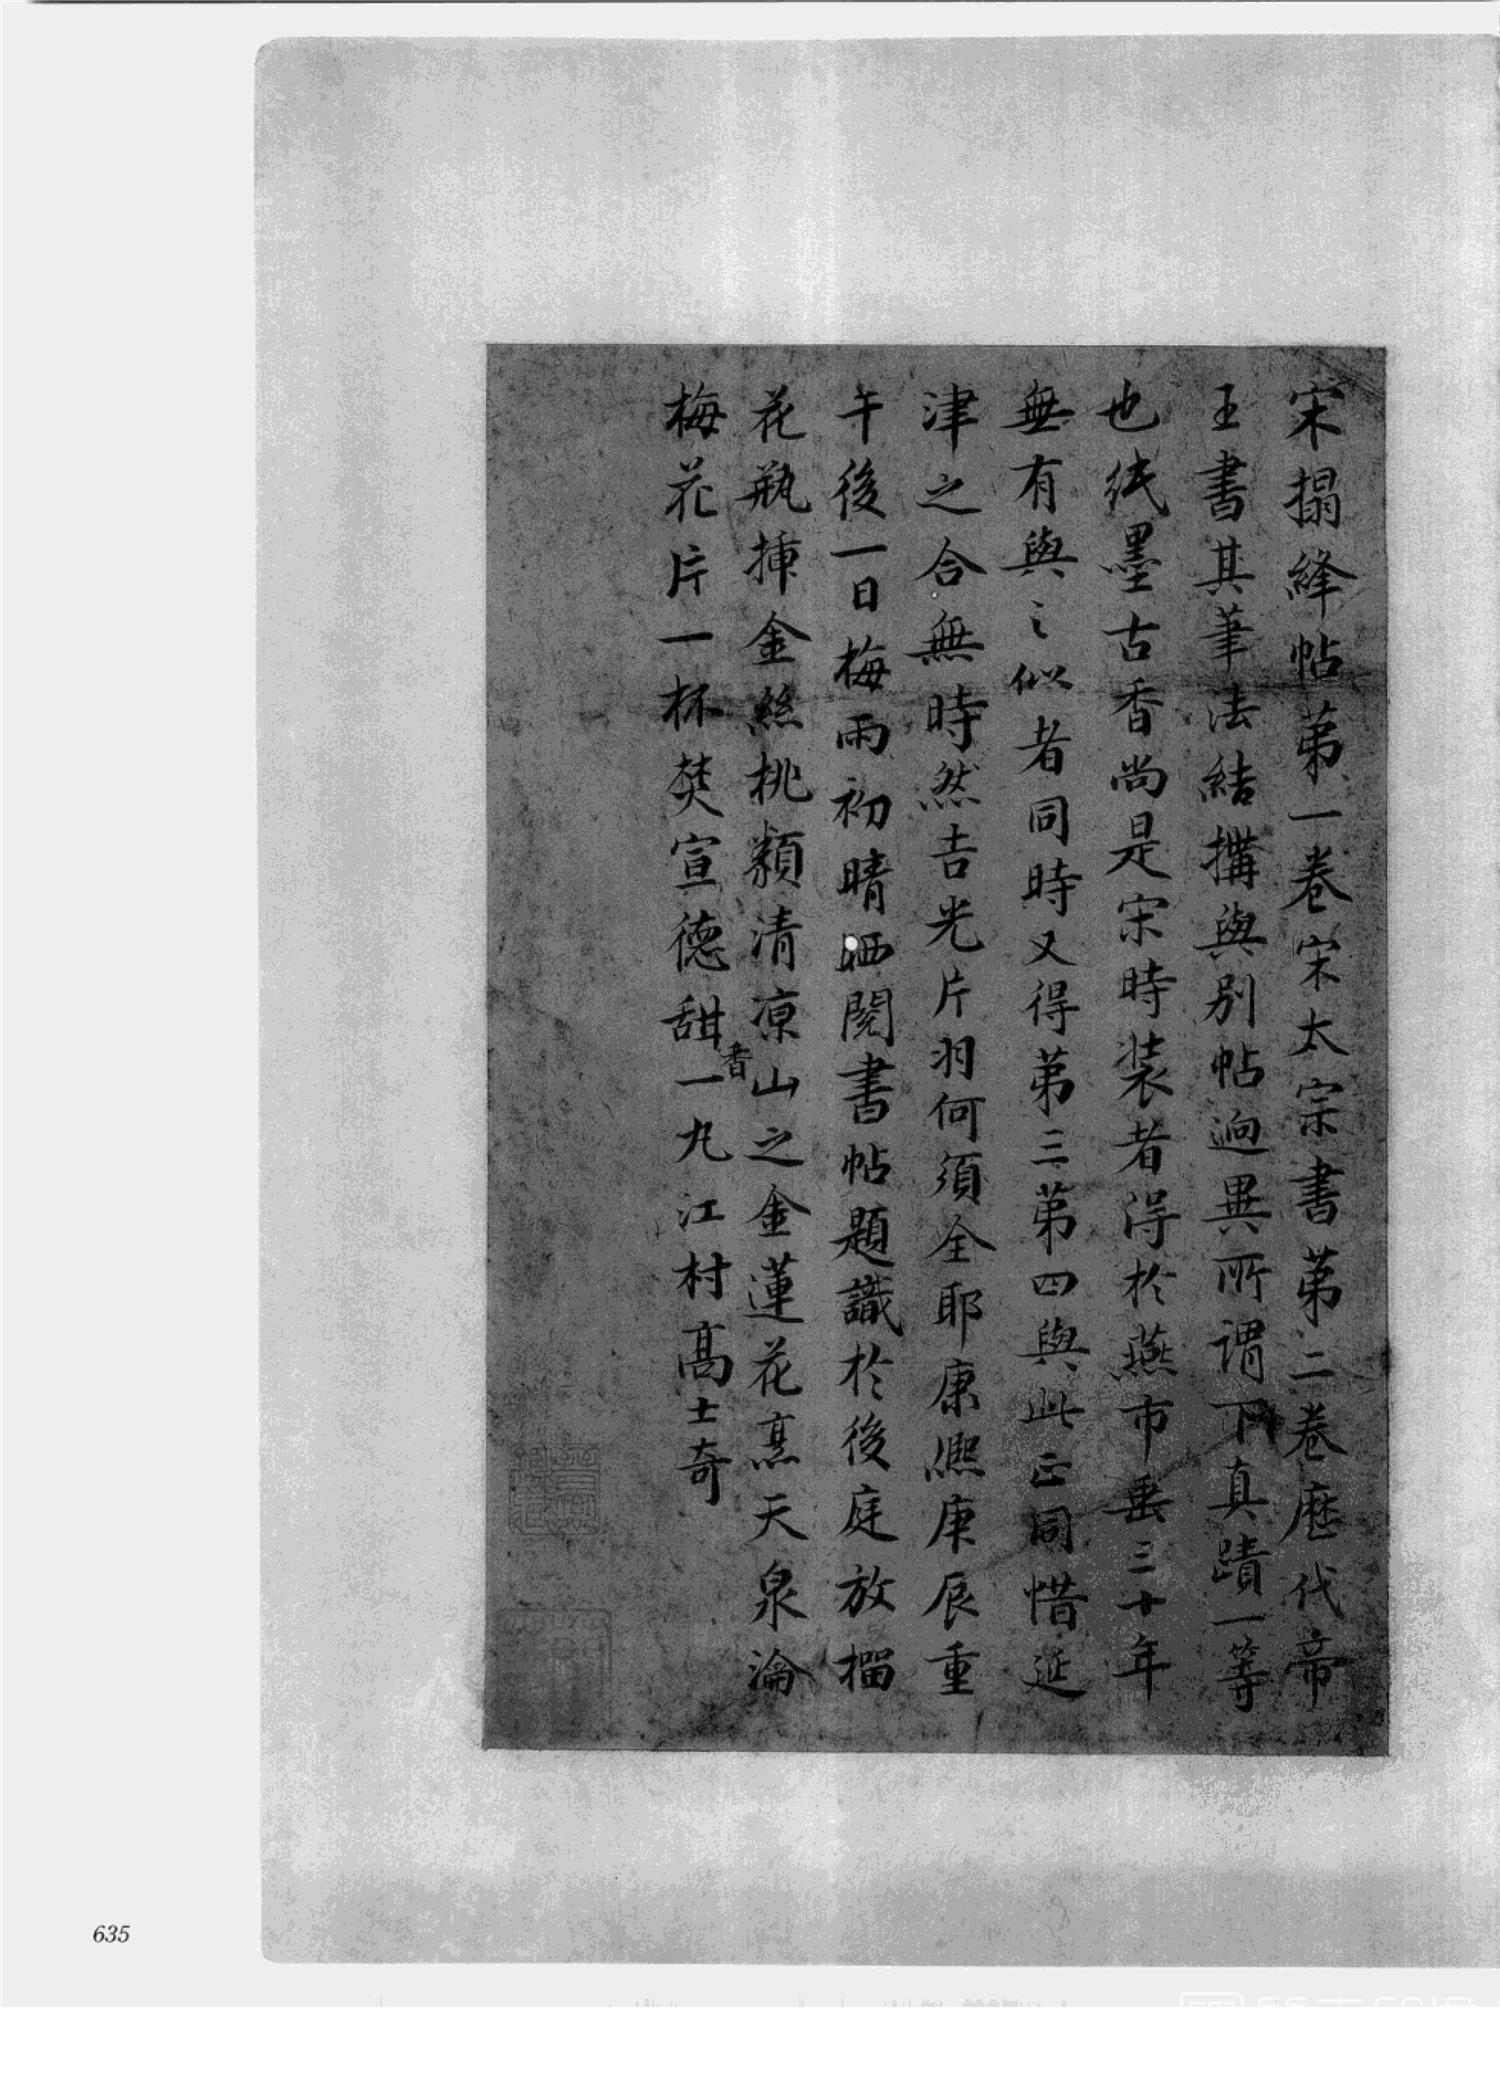 宋搨絳帖第一卷宋太宗書第二卷歷代帝
王書其筆法結搆與別帖迥異所謂下真蹟一等
也紙墨古香尚是宋時装者得於燕市垂三十年
無有與之似者同時又得第三第四與此正同惜延
津之合無時然吉光片羽何須全耶康熈庚辰重
午後一日梅雨初晴晒閱書帖題識於後庭放榴
花瓶揷金絲桃纇清凉山之金蓮花烹天泉瀹
梅花片一杯焚宣德甜香一丸江村高士奇
635